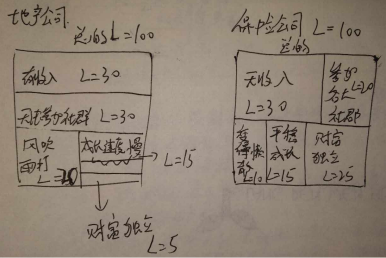 地产公司
总的L=100
有收入 L=30
无法参加社群 L=30
风吹
雨打
L=20
成长速度慢
L=15
财富独立
L=5
保险公司 L=100
总的
无收入
L=30
参加
名人
L=20
社群
L=10
平稳
成长
L=15
财富
独立
L=25